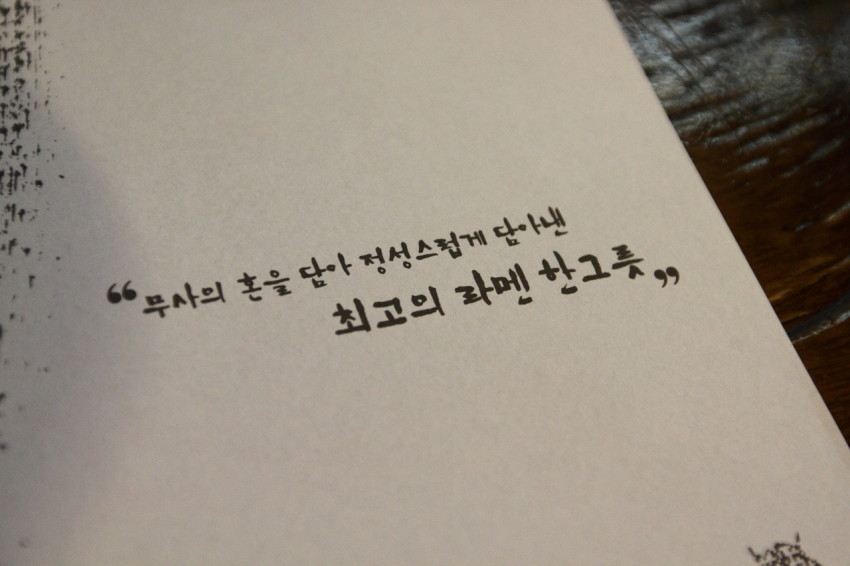 “무사의 혼을 담아 정성스럽게 담아낸
최고의 라멘 한그릇”